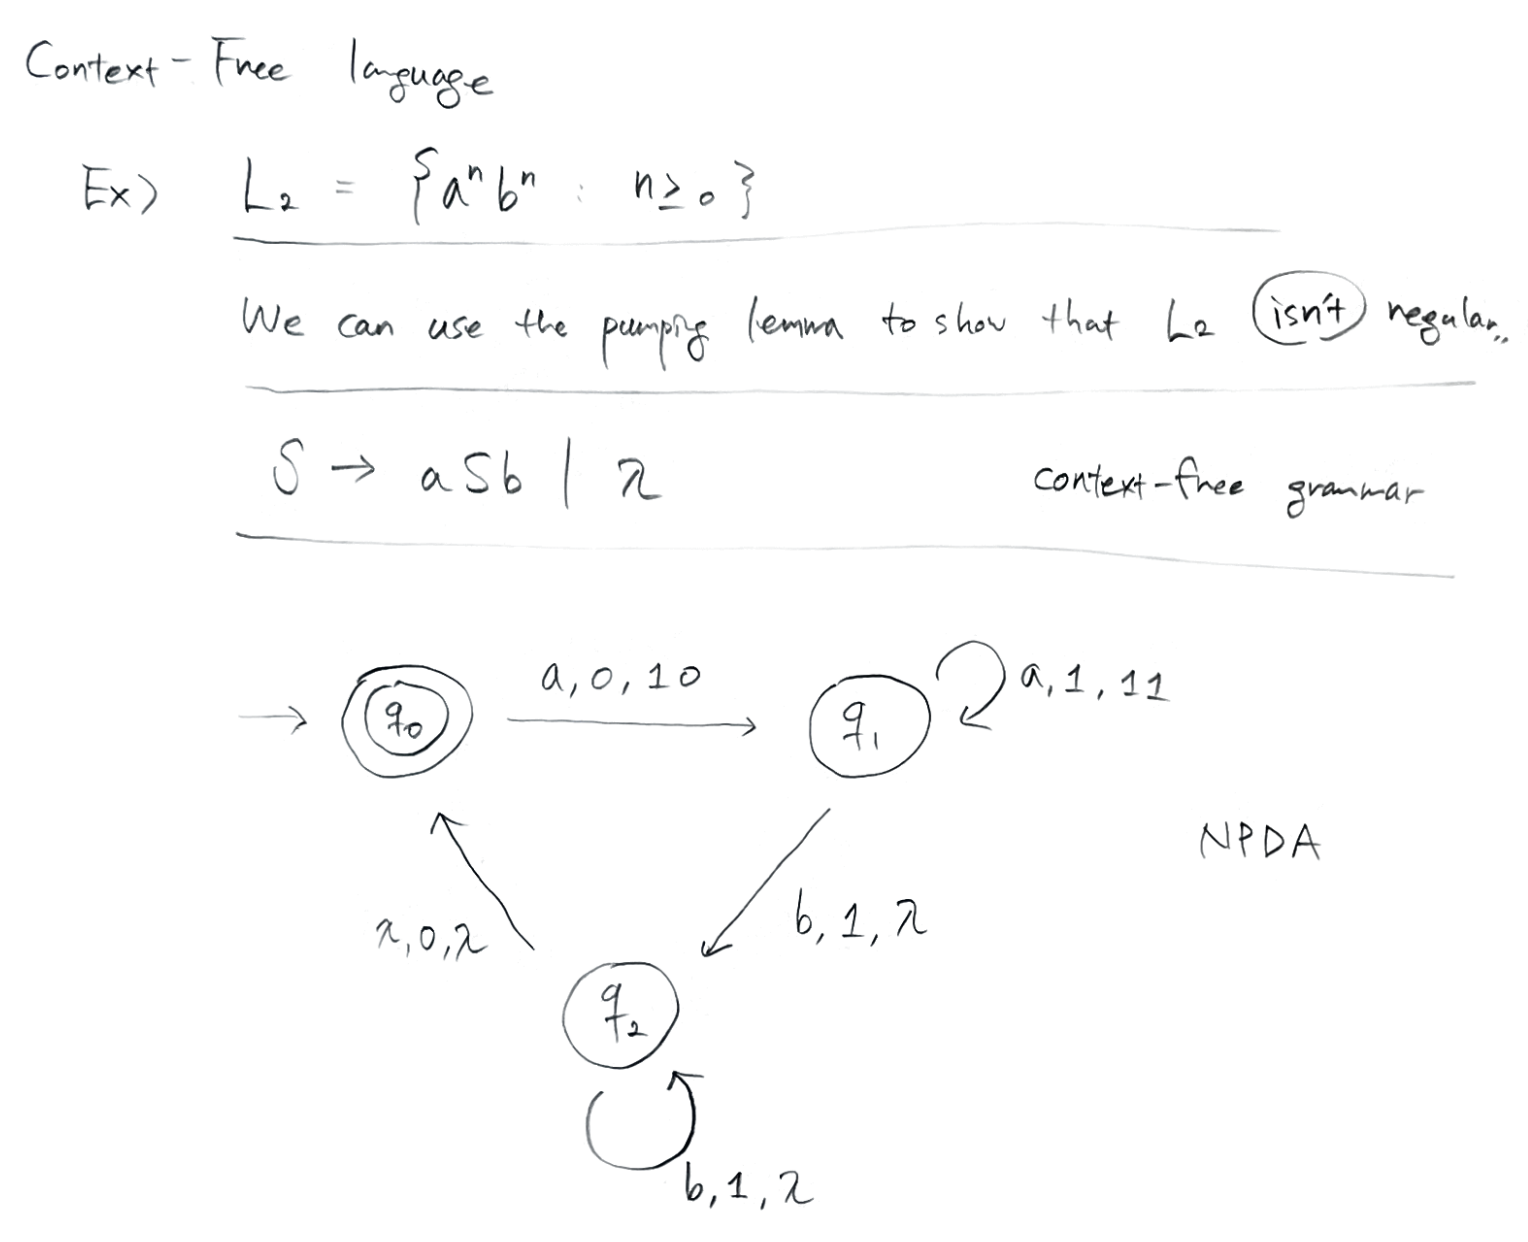 Context-Free language
Ex> L₂ = {aⁿbⁿ : n≥0}
We can use the pumping lemma to show that L₂ isn't regular..
S → aSb | λ context-free grammar
a,0,10
a,1,11
q₀
q₁
NPDA
λ,0,λ
b,1,λ
q₂
b,1,λ